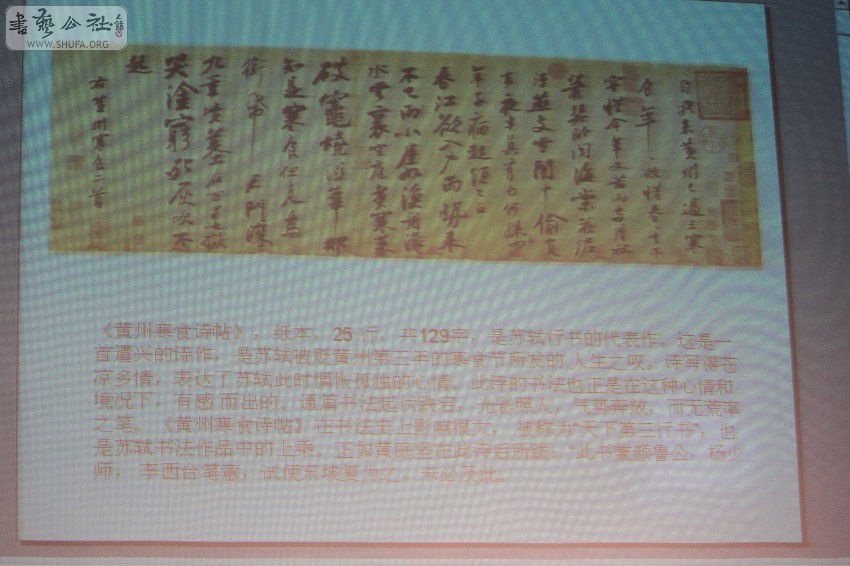 書藝公社
WWW.SHUFA.ORG
自我来黄州已過三寒
食年〻欲惜春〻去不
容惜今年又苦雨兩月秋
蕭瑟卧聞海棠花泥
汙燕支雪闇中偷負
去夜半真有力何殊
年子病起頭已白
春江欲入户雨勢来
不已雨小屋如漁舟濛〻
水雲裏空庖煮寒菜
破竈燒濕葦那
知是寒食但見烏
銜帋君門深
九重墳墓在万里也擬
哭塗窮死灰吹不
起
右黄州寒食二首
《黄州寒食诗帖》，纸本，25 行，共129字，是苏轼行书的代表作。这是一
首遣兴的诗作，是苏轼被贬黄州第三年的寒食节所发的 人生之叹。诗写得苍
凉多情，表达了苏轼此时惆怅孤独的心情。此诗的书法也正是在这种心情和
境况下，有感 而出的。通篇书法起伏跌宕，光彩照人，气势奔放，而无荒率
之笔。《黄州寒食诗帖》在书法史上影响很大，被称为“天下第三行书”，也
是苏轼书法作品中的上乘。正如黄庭坚在此诗后所跋：“此书兼颜鲁公，杨少
师， 李西台笔意，试使东坡复为之，未必及此。